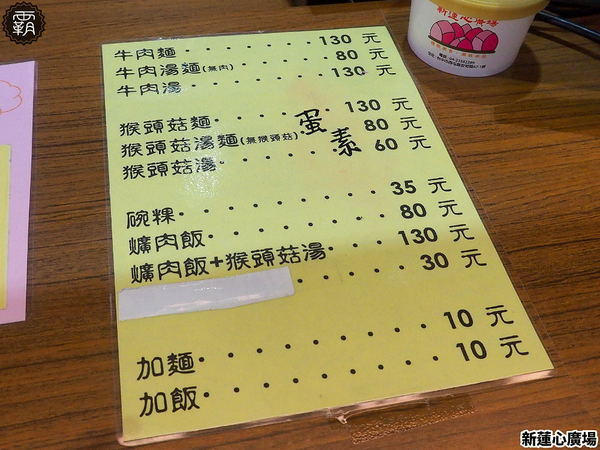 霸
新蓮心廣場
牛肉麵‧‧‧‧‧‧‧130 元
牛肉湯麵(無肉)‧‧‧‧‧80 元
牛肉湯‧‧‧‧‧‧‧130 元
猴頭菇麵‧‧‧‧‧‧130 元
猴頭菇湯麵(無猴頭菇)‧‧80 元
猴頭菇湯‧‧‧‧‧‧60 元
蛋素
碗粿‧‧‧‧‧‧‧‧35 元
爌肉飯‧‧‧‧‧‧‧80 元
爌肉飯+猴頭菇湯‧‧‧130 元
‧‧‧‧‧30 元
加麵‧‧‧‧‧‧‧‧10 元
加飯‧‧‧‧‧‧‧‧10 元
新蓮心廣場